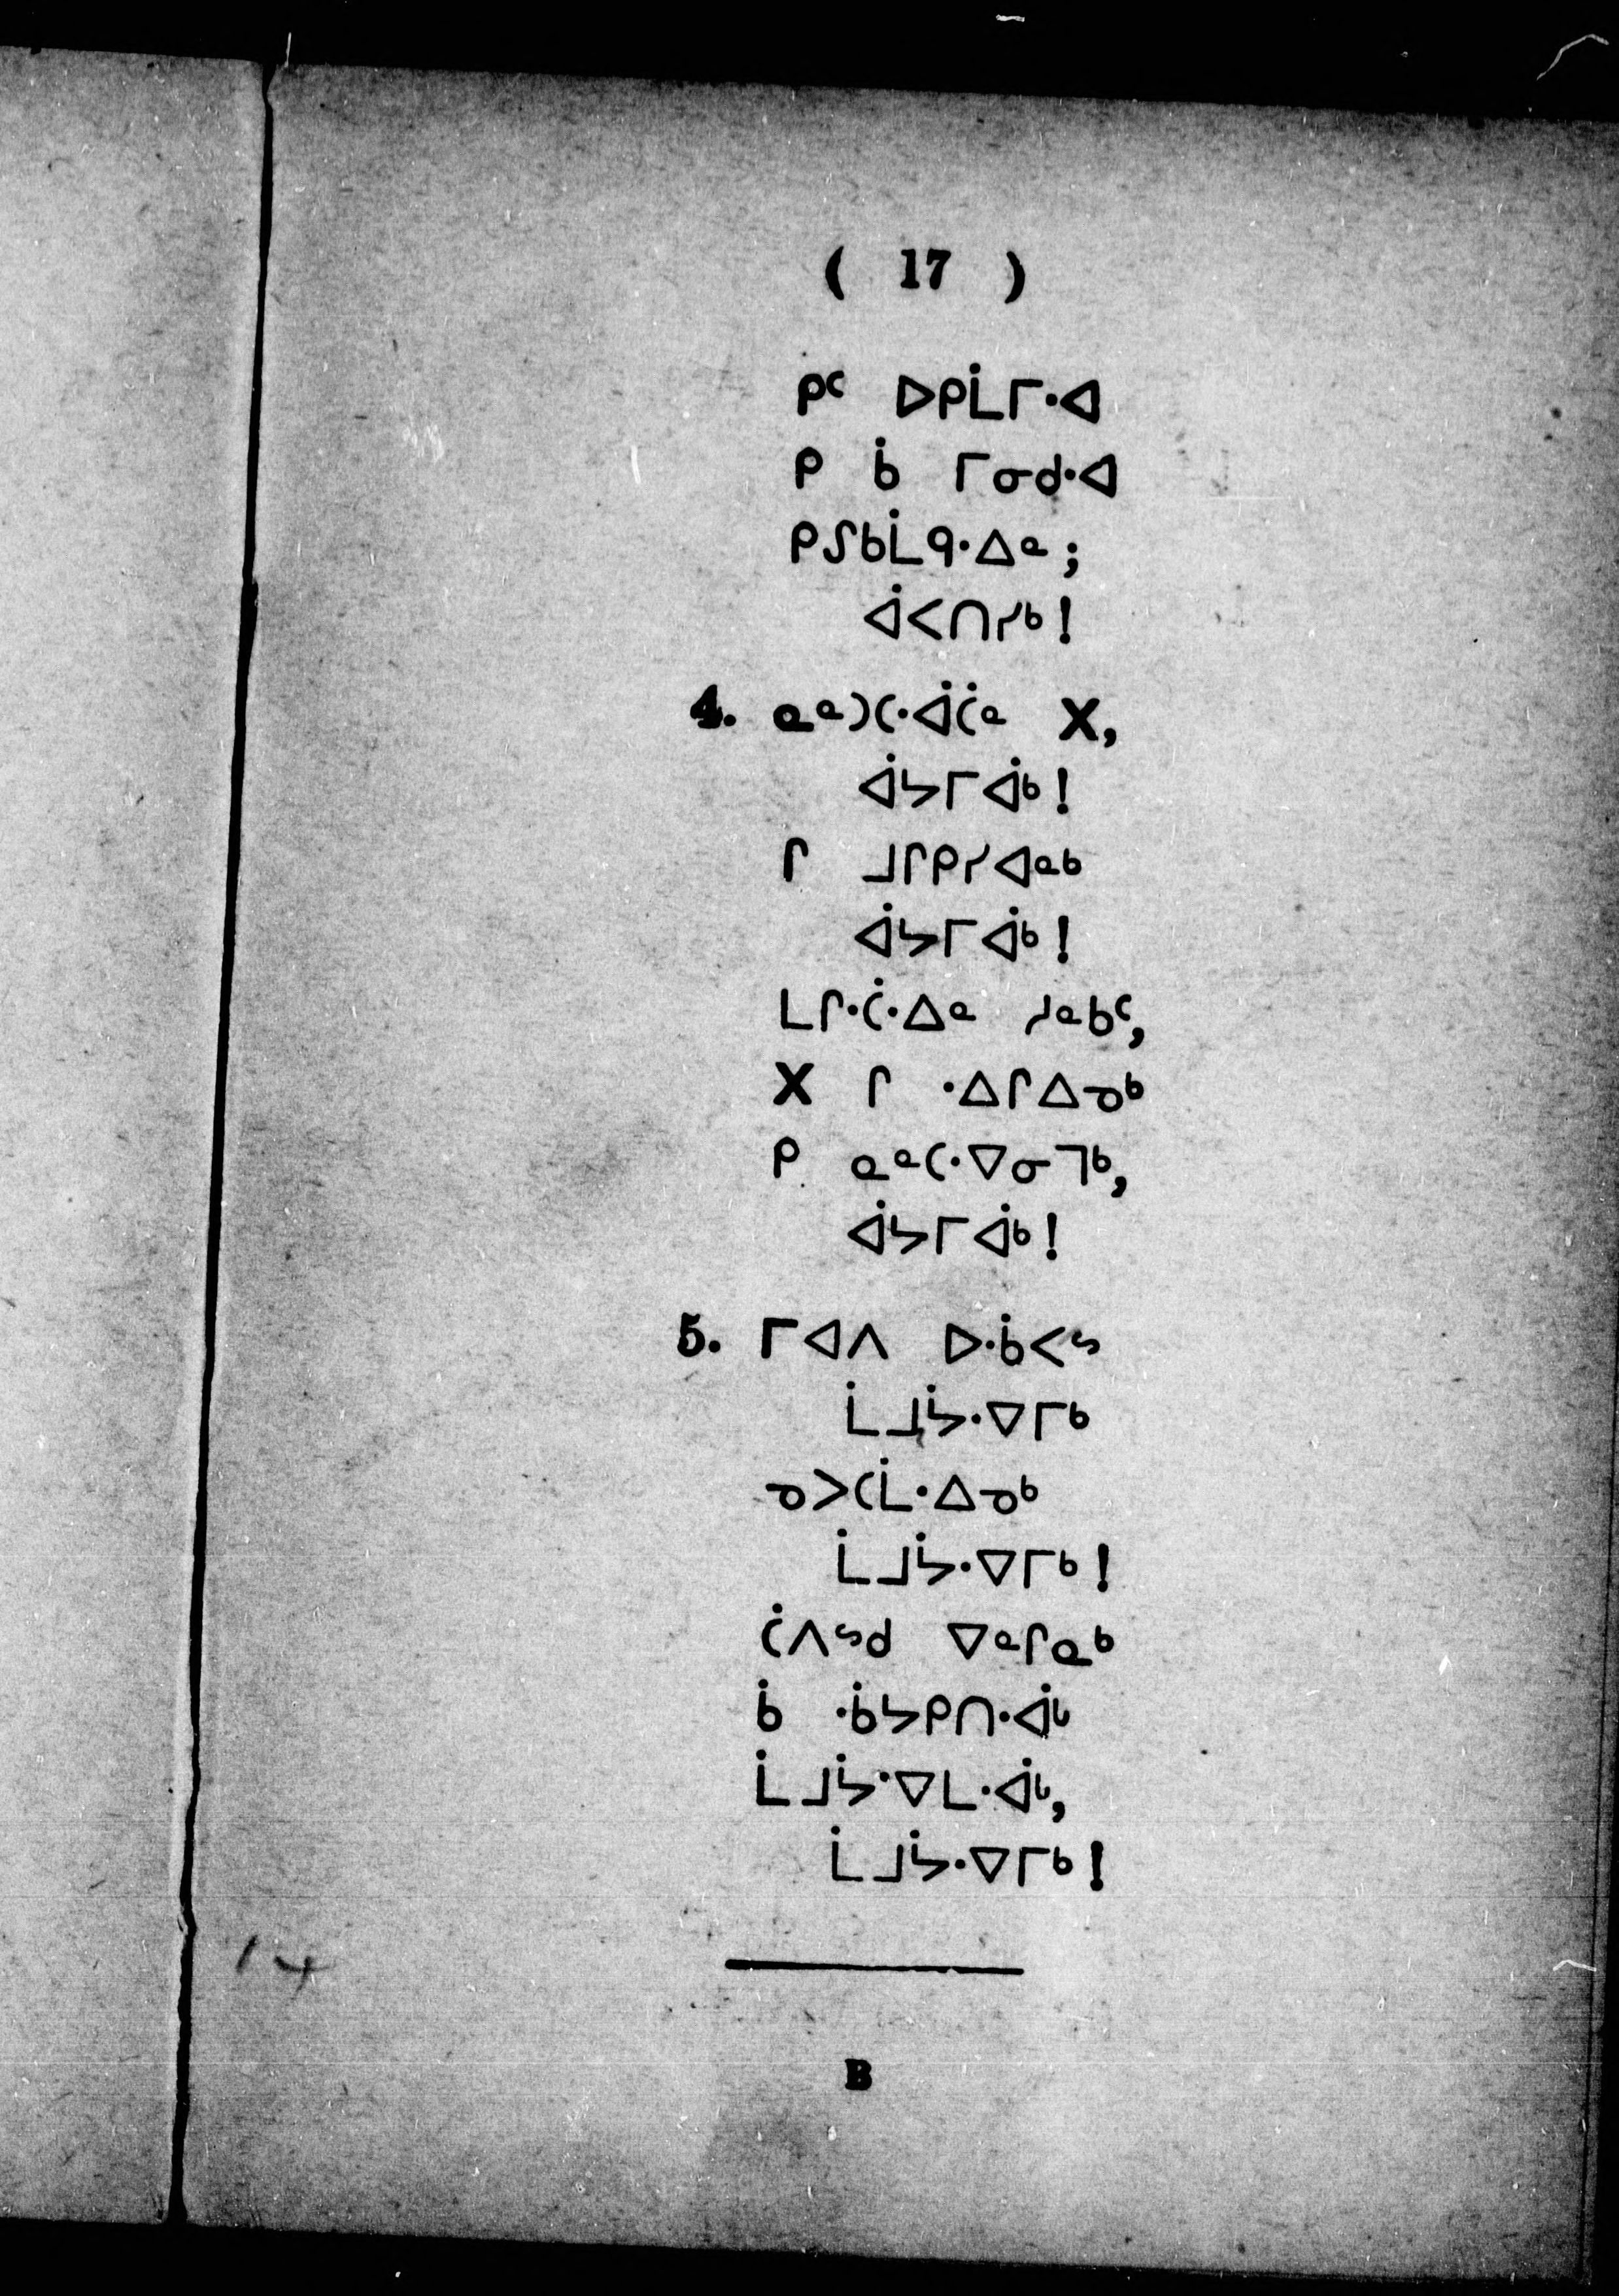 ( 17 )
ᑭᑦ ᐅᑭᒫᒥᐧᐊ
ᑭ ᑳ ᒥᓂᑯᐧᐊ
ᑭᔑᑲᒫᑫᐧᐃᓐ;
ᐋᐸᑎᓯᒃ!
4. ᓇᓐᑐᑕᐧᐋᑖᓐ X,
ᐋᔭᒥᐋᒃ!
ᒋ ᒧᒋᑭᓯᐊᓐᒃ
ᐋᔭᒥᐋᒃ!
ᒪᒋᐧᑖᐧᐃᓐ ᓱᓐᑲᑦ,
X ᒋ ᐧᐃᒋᐃᓄᒃ
ᑭ ᓇᓐᑕᐧᐁᓂᒣᒃ,
ᐋᔭᒥᐋᒃ!
5. ᒥᐊᐱ ᐅᐧᑳᐸᔥ
ᒫᒧᔮᐧᐁᒥᒃ
ᓄᐳᑕᒫᐧᐃᓄᒃ
ᒫᒧᔮᐧᐁᒥᒃ!
ᑖᐱᔥᑯ ᐁᓐᒋᓇᒃ
ᑳ ᐧᑳᔭᑭᑎᐧᐋᒡ
ᒫᒧᔮᐧᐁᒪᐧᐋᒡ,
ᒫᒧᔮᐧᐁᒥᒃ!
B
14